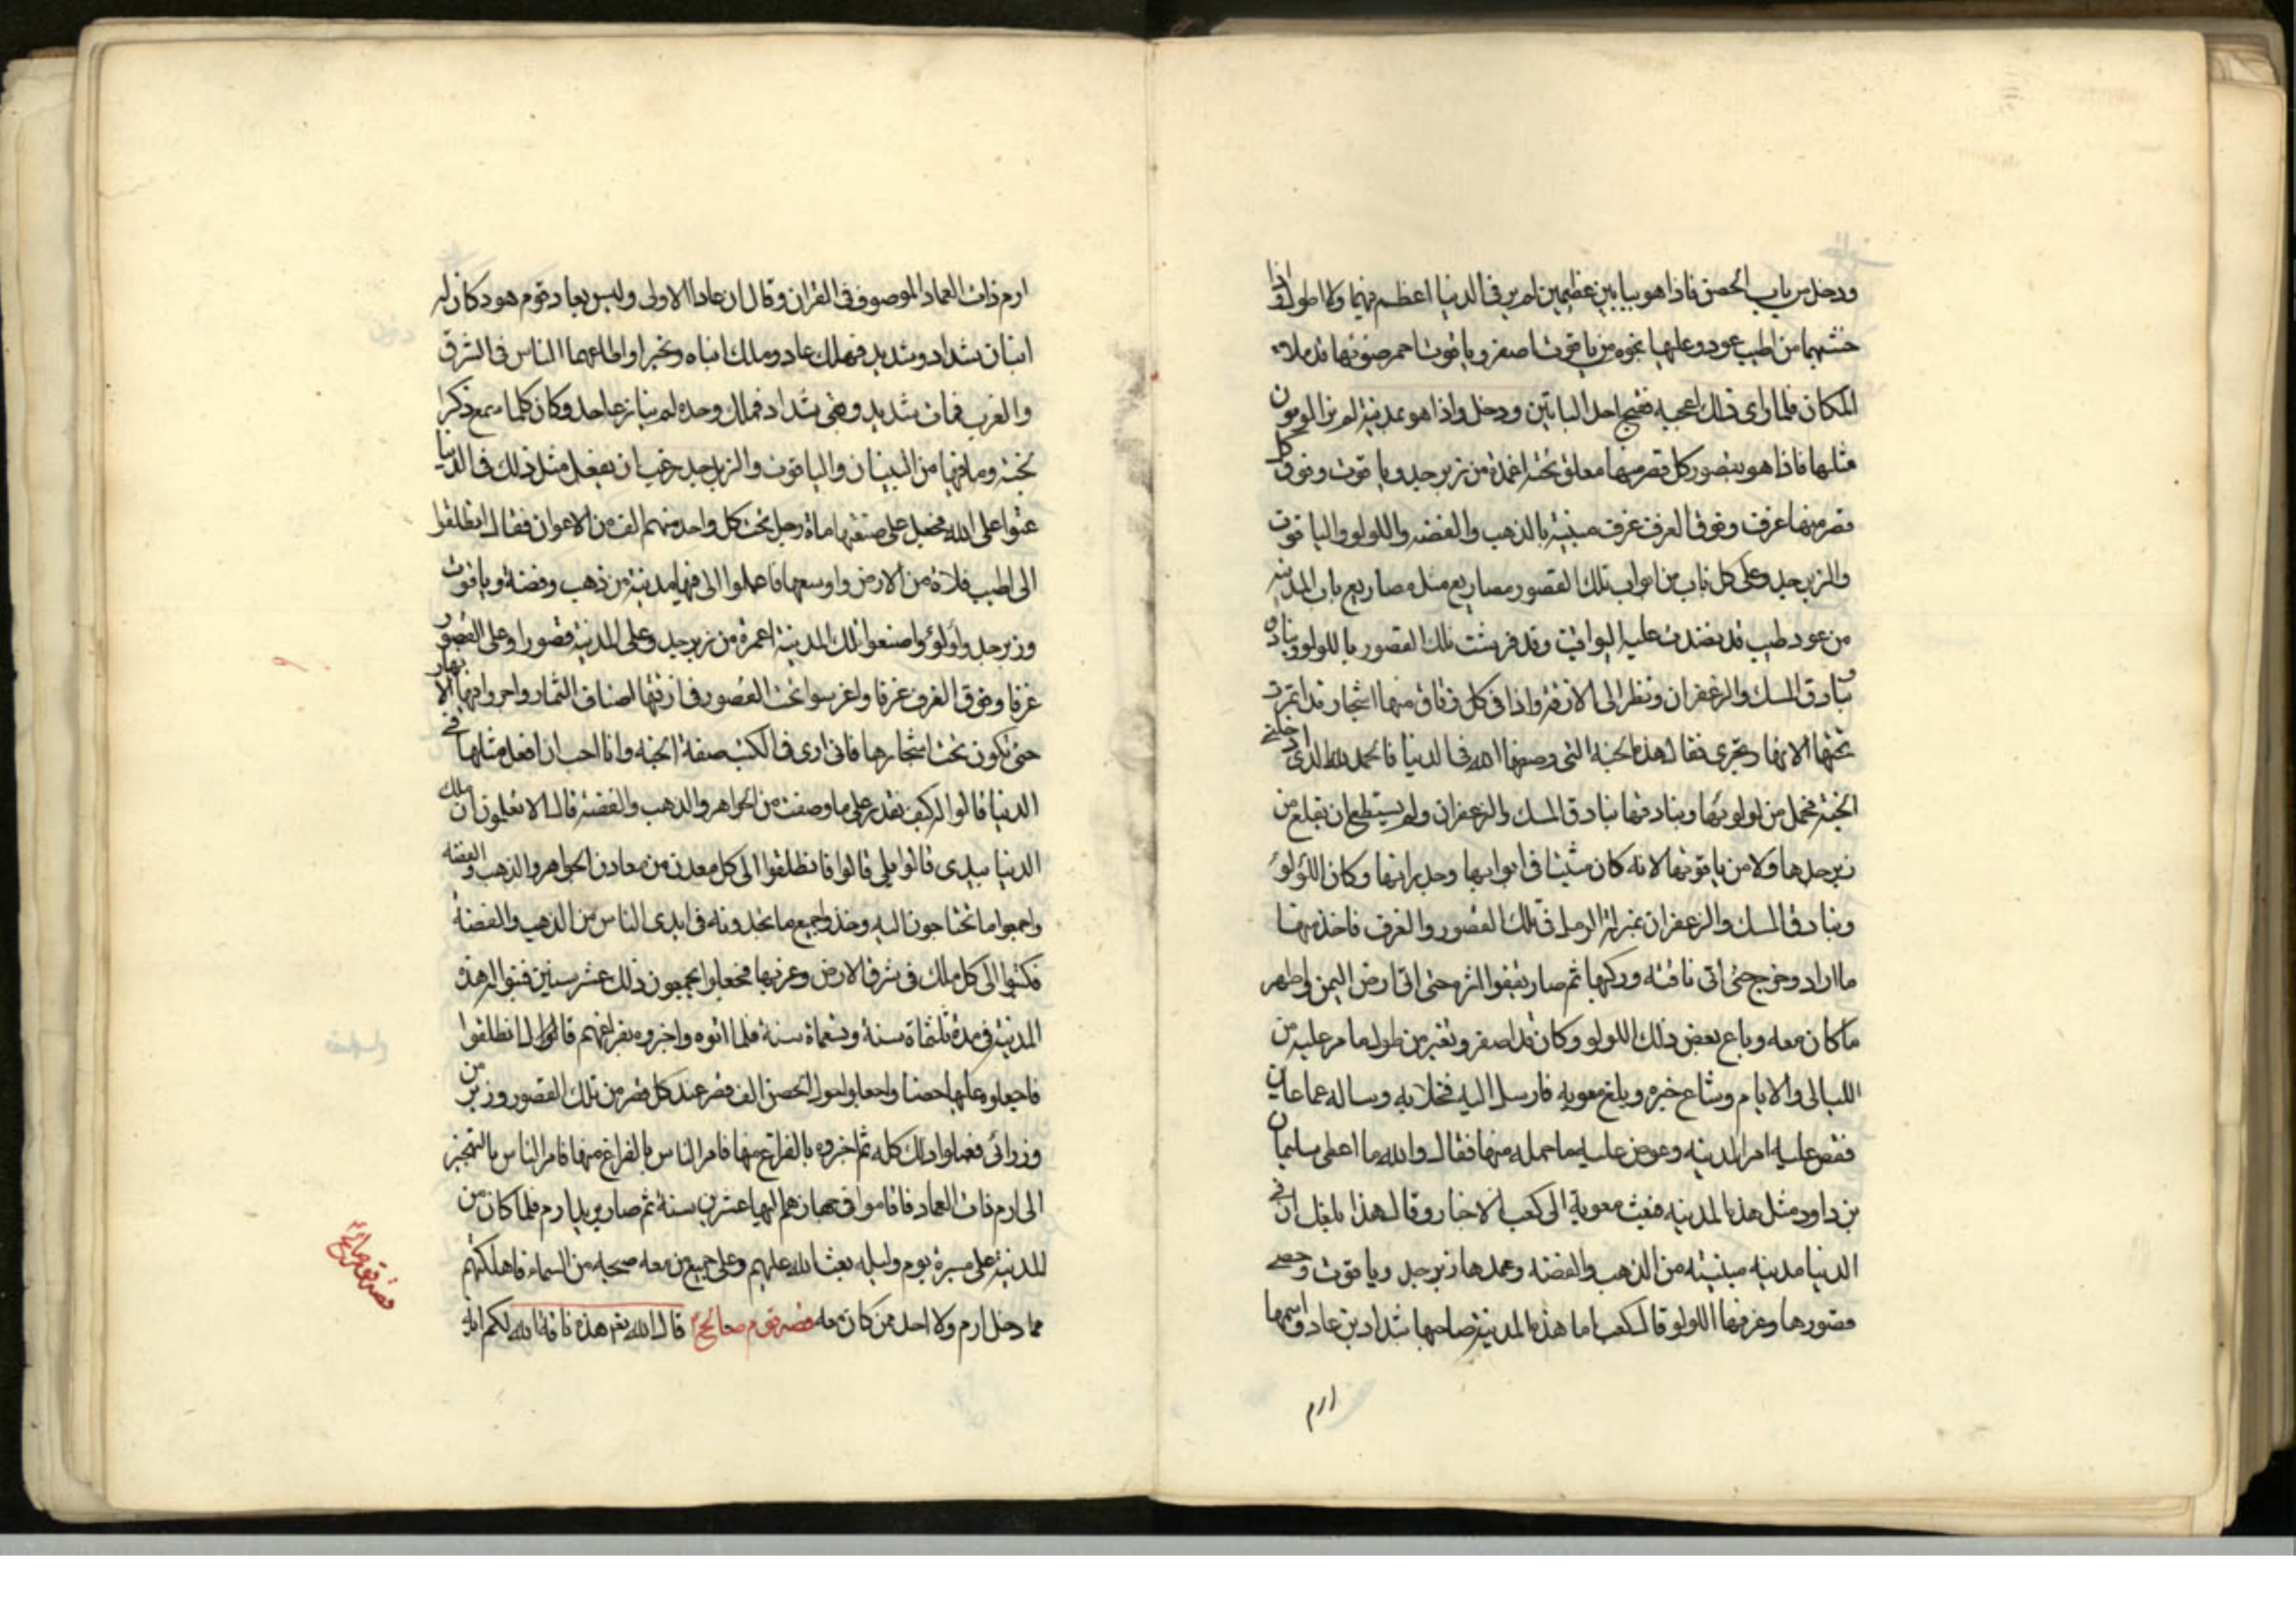 ودخل من باب الحصن فاذا هو ببابين عظيمين لم ير في الدنيا اعظم منهما ولا اطول واذا
خشبهما من اطيب عود وعليها نجوم من ياقوت اصفر وياقوت احمر ضوئها قد ملاء
المكان فلما راى ذلك اعجبه ففتح احد البابين ودخل واذا هو بمدينة لم ير الراؤن
مثلها فاذا هو بقصور كل قصر منها معلق تحته اعمدة من زبرجد وياقوت وفوق كل
قصر منها غرف وفوق الغرف غرف مبنية بالذهب والفضة واللولو والياقوت
والزبرجد وعلى كل باب من ابواب تلك القصور مصاريع مثل مصاريع باب المدينة
من عود طيب قد نضدت عليه اليواقيت وقد فرشت تلك القصور باللولو وبنادق
بنادق المسك والزعفران ونظر الى الازقة واذا في كل زقاق منها اشجار قد اثمرت
تحتها الانهار تجرى فقال هذه الجنة التى وصفها الله في الدنيا فالحمد لله الذى ادخلنى
الجنة فحمل من لولوئها وبنادقها بنادق المسك والزعفران ولم يستطع ان يقلع من
زبرجدها ولا من ياقوتها لانه كان مثبتا في ابوابها وجدرانها وكان اللؤلؤ
وبنادق المسك والزعفران بمنزلة الرمل في تلك القصور والغرف فاخذ منها
ما اراد وخرج حتى اتى ناقته وركبها ثم صار يقفوا اثره حتى اتى ارض اليمن واظهر
ما كان معه وباع بعض ذلك اللولو وكان قد اصفر وتغير من طول ما مر عليه من
الليالى والايام وشاع خبره وبلغ معويه فارسل اليه فخلا به وساله عما عاين
فقص عليه امر المدينه وعرض عليه ما حمله منها فقال والله ما اعطى سليمان
بن داود مثل هذه المدينه فبعث معوية الى كعب الاحبار وقال هذا بلغك ان في
الدنيا مدينه مبنيته من الذهب والفضه وعمدها زبرجد وياقوت وحصى
قصورها وغرفها اللولو قال كعب اما هذه المدينة صاحبها شداد بن عاد واسمها
ارم
ارم ذات العماد الموصوف في القران وقال ان عادا الاولى وليس بعاد قوم هود كان له
ابنان شداد وشديد فهلك عاد وملك ابناه وتجبرا واطاعهما الناس في الشرق
والغرب فمات شديد وبقى شداد فملك وحده لم ينازعه احد وكان كلما سمع ذكر
الجنة وما فيها من البنيان والياقوت والزبرجد رغب ان يفعل مثل ذلك في الدنيا
عتوا على الله فجعل على صنعتها مأة رجل تحت كل واحد منهم الف من الاعوان فقال انطلقوا
الى اطيب فلاة من الارض واوسعها فاعملوا الى فيها مدينة من ذهب وفضة وياقوت
وزبرجد ولؤلؤ واصنعوا تلك المدينة اعمدة من زبرجد وعلى المدينة قصورا وعلى القصور
غرفا وفوق الغرف غرفا واغرسوا تحت القصور في ازقتها اصناف الثمار واجروا فيها الانهار
حتى تكون تحت اشجارها فانى ارى في الكتب صفة الجنه وانا احب ان افعل مثلها في
الدنيا قالوا له كيف نقدر على ما وصفت من الجواهر والذهب والفضة قال الا تعلمون ان ملك
الدنيا بيدى قالوا بلى قالوا فانطلقوا الى كل معدن من معادن الجواهر والذهب والفضه
واجمعوا ما تحتاجون اليه وخذوا جميع ما تجدونه في ايدى الناس من الذهب والفضة
فكتبوا الى كل ملك في شرق الارض وغربها فجعلوا يجمعون ذلك عشر سنين فبنوا له هذه
المدينة في مدة ثلثماة سنة وتسعماة سنة فلما اتوه واخبروه بفراغهم قالوا له انطلقوا
فاجعلوه عليها حصنا واجعلوا حول الحصن الف قصر عند كل قصر من تلك القصور وزير من
وزرائى فعملوا ذلك كله ثم اخبروه بالفراغ منها فامر الناس بالفراغ منها فامر الناس بالتجهيز
الى ارم ذات العماد فاقاموا في جهازهم اليها عشرين سنة ثم صار يريد ارم فلما كان من
المدينة على مسيرة يوم وليله بعث الله عليهم وعلى جميع من معه صيحه من السماء فاهلكتهم
مما دخل ارم ولا احد ممن كان معه قصة قوم صالح قال الله تعم هذه ناقة الله لكم اية
قصة قوم صالح